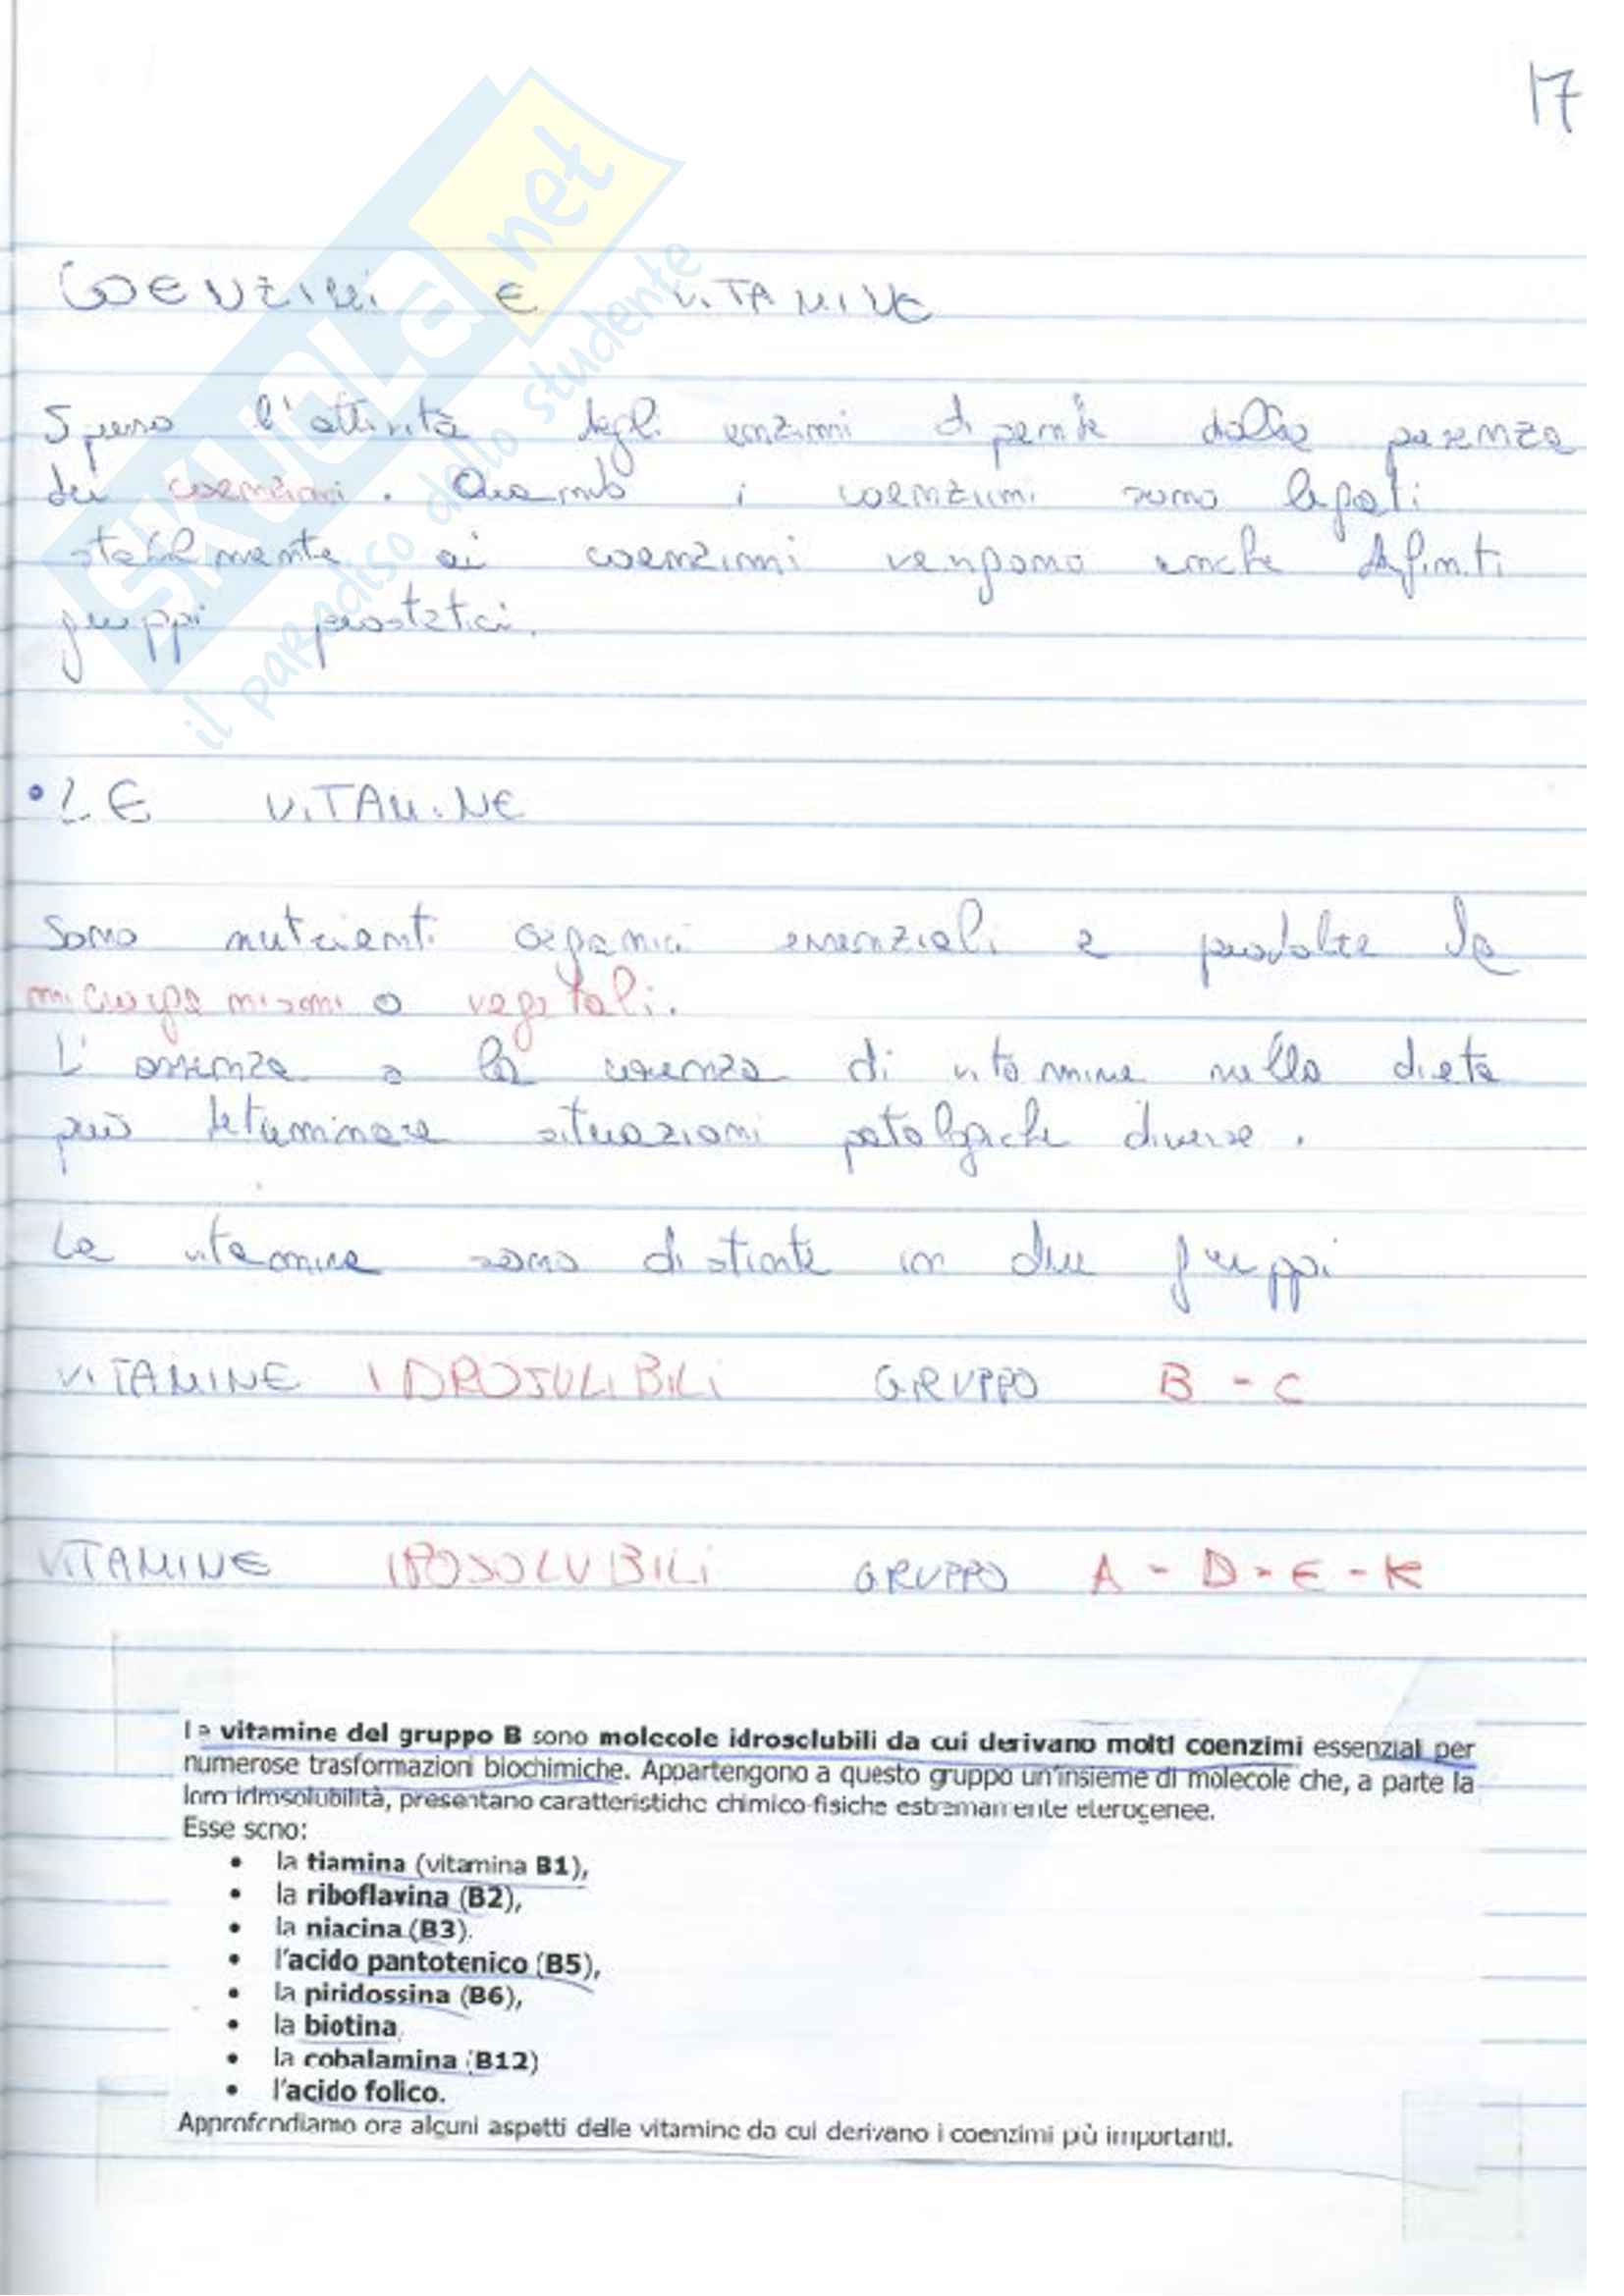 17
SKUOLA.net
il paradiso dello studente
COENZIMI E VITAMINE
Spesso l'attività degli enzimi dipende dalla presenza
dei coenzimi. Quando i coenzimi sono legati
stabilmente ai coenzimi vengono anche definiti
gruppi prostetici.
• LE VITAMINE
Sono nutrienti organici essenziali e prodotte da
microrganismi o vegetali.
L'assenza o la carenza di vitamine nella dieta
può determinare situazioni patologiche diverse.
Le vitamine sono distinte in due gruppi
VITAMINE IDROSOLUBILI GRUPPO B - C
VITAMINE IPOSOLUBILI GRUPPO A - D - E - K
Le vitamine del gruppo B sono molecole idrosolubili da cui derivano molti coenzimi essenziali per
numerose trasformazioni biochimiche. Appartengono a questo gruppo un'insieme di molecole che, a parte la
loro idrosolubilità, presentano caratteristiche chimico-fisiche estremamente eterogenee.
Esse sono:
• la tiamina (vitamina B1),
• la riboflavina (B2),
• la niacina (B3).
• l'acido pantotenico (B5),
• la piridossina (B6),
• la biotina,
• la cobalamina (B12)
• l'acido folico.
Approfondiamo ora alcuni aspetti delle vitamine da cui derivano i coenzimi più importanti.